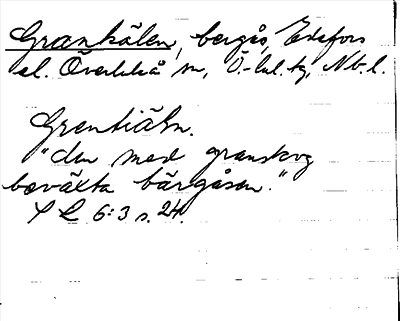 Grankälen, bergås, Edefors
el. Överluleå sn, Ö-lul. tg, Nb. l.
Grentiäln.
"den med granskog
beväxta bärgåsen."
S L 6:3 s. 24.